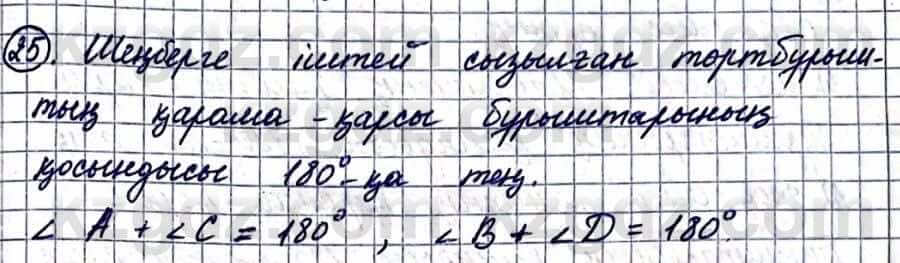 25. Шеңберге іштей сызылған төртбұрыш-
тың қарама-қарсы бұрыштарының
қосындысы 180°-қа тең.
∠ A + ∠C = 180°, ∠B + ∠D = 180°.